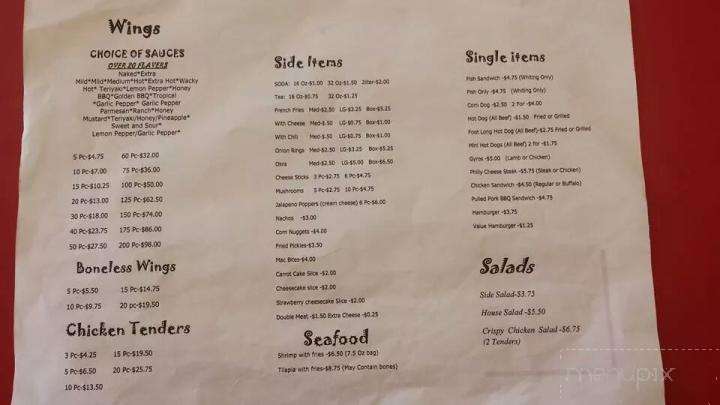 Wings
CHOICE OF SAUCES
OVER 20 FLAVERS
Naked*Extra
Mild*Mild*Medium*Hot*Extra Hot*Wacky
Hot* Teriyaki*Lemon Pepper*Honey
BBQ*Golden BBQ*Tropical
*Garlic Pepper* Garlic Pepper
Parmesan*Ranch*Honey
Mustard*Teriyaki/Honey/Pineapple*
Sweet and Sour*
Lemon Pepper/Garlic Pepper*
5 Pc-$4.75 60 Pc-$32.00
10 Pc-$7.00 75 Pc-$36.00
15 Pc-$10.25 100 Pc-$50.00
20 Pc-$13.00 125 Pc-$62.50
30 Pc-$18.00 150 Pc-$74.00
40 Pc-$23.75 175 Pc-$86.00
50 Pc-$27.50 200 Pc-$98.00
Boneless Wings
5 Pc-$5.50 15 Pc-$14.75
10 Pc-$9.75 20 pc-$19.50
Chicken Tenders
3 Pc-$4.25 15 Pc-$19.50
5 Pc-$6.50 20 Pc-$25.75
10 Pc-$13.50
Side Items
SODA: 16 Oz-$1.00 32 Oz-$1.50 2liter-$2.00
Tea: 16 Oz-$0.75 32 Oz-$1.25
French Fries Med-$2.50 LG-$3.25 Box-$5.25
With Cheese Med-$.50 LG-$0.75 Box-$1.00
With Chili Med-$.50 LG-$0.75 Box-$1.00
Onion Rings Med-$2.50 LG-$3.25 Box-$5.25
Okra Med-$2.50 LG-$5.00 Box-$6.50
Cheese Sticks 3 Pc-$2.75 6 Pc-$4.75
Mushrooms 5 Pc-$2.75 10 Pc-$4.75
Jalapeno Poppers (cream cheese) 6 Pc-$6.00
Nachos -$3.00
Corn Nuggets -$4.00
Fried Pickles-$3.50
Mac Bites-$4.00
Carrot Cake Slice -$2.00
Cheesecake slice -$2.00
Strawberry cheesecake Slice -$2.00
Double Meat -$1.50 Extra Cheese -$0.25
Seafood
Shrimp with fries -$6.50 (7.5 Oz bag)
Tilapia with fries-$8.75 (May Contain bones)
Single items
Fish Sandwich -$4.75 (Whiting Only)
Fish Only -$4.75 (Whiting Only)
Corn Dog -$2.50 2 For -$4.00
Hot Dog (All Beef) -$1.50 Fried or Grilled
Foot Long Hot Dog (All Beef)-$2.75 Fried or Grilled
Mini Hot Dogs (All Beef) 2 for -$1.75
Gyros -$5.00 (Lamb or Chicken)
Philly Cheese Steak -$5.75 (Steak or Chicken)
Chicken Sandwich -$4.50 (Regular or Buffalo)
Pulled Pork BBQ Sandwich -$4.75
Hamburger -$3.75
Value Hamburger -$1.25
Salads
Side Salad-$3.75
House Salad -$5.50
Crispy Chicken Salad -$6.75
(2 Tenders)
menupix